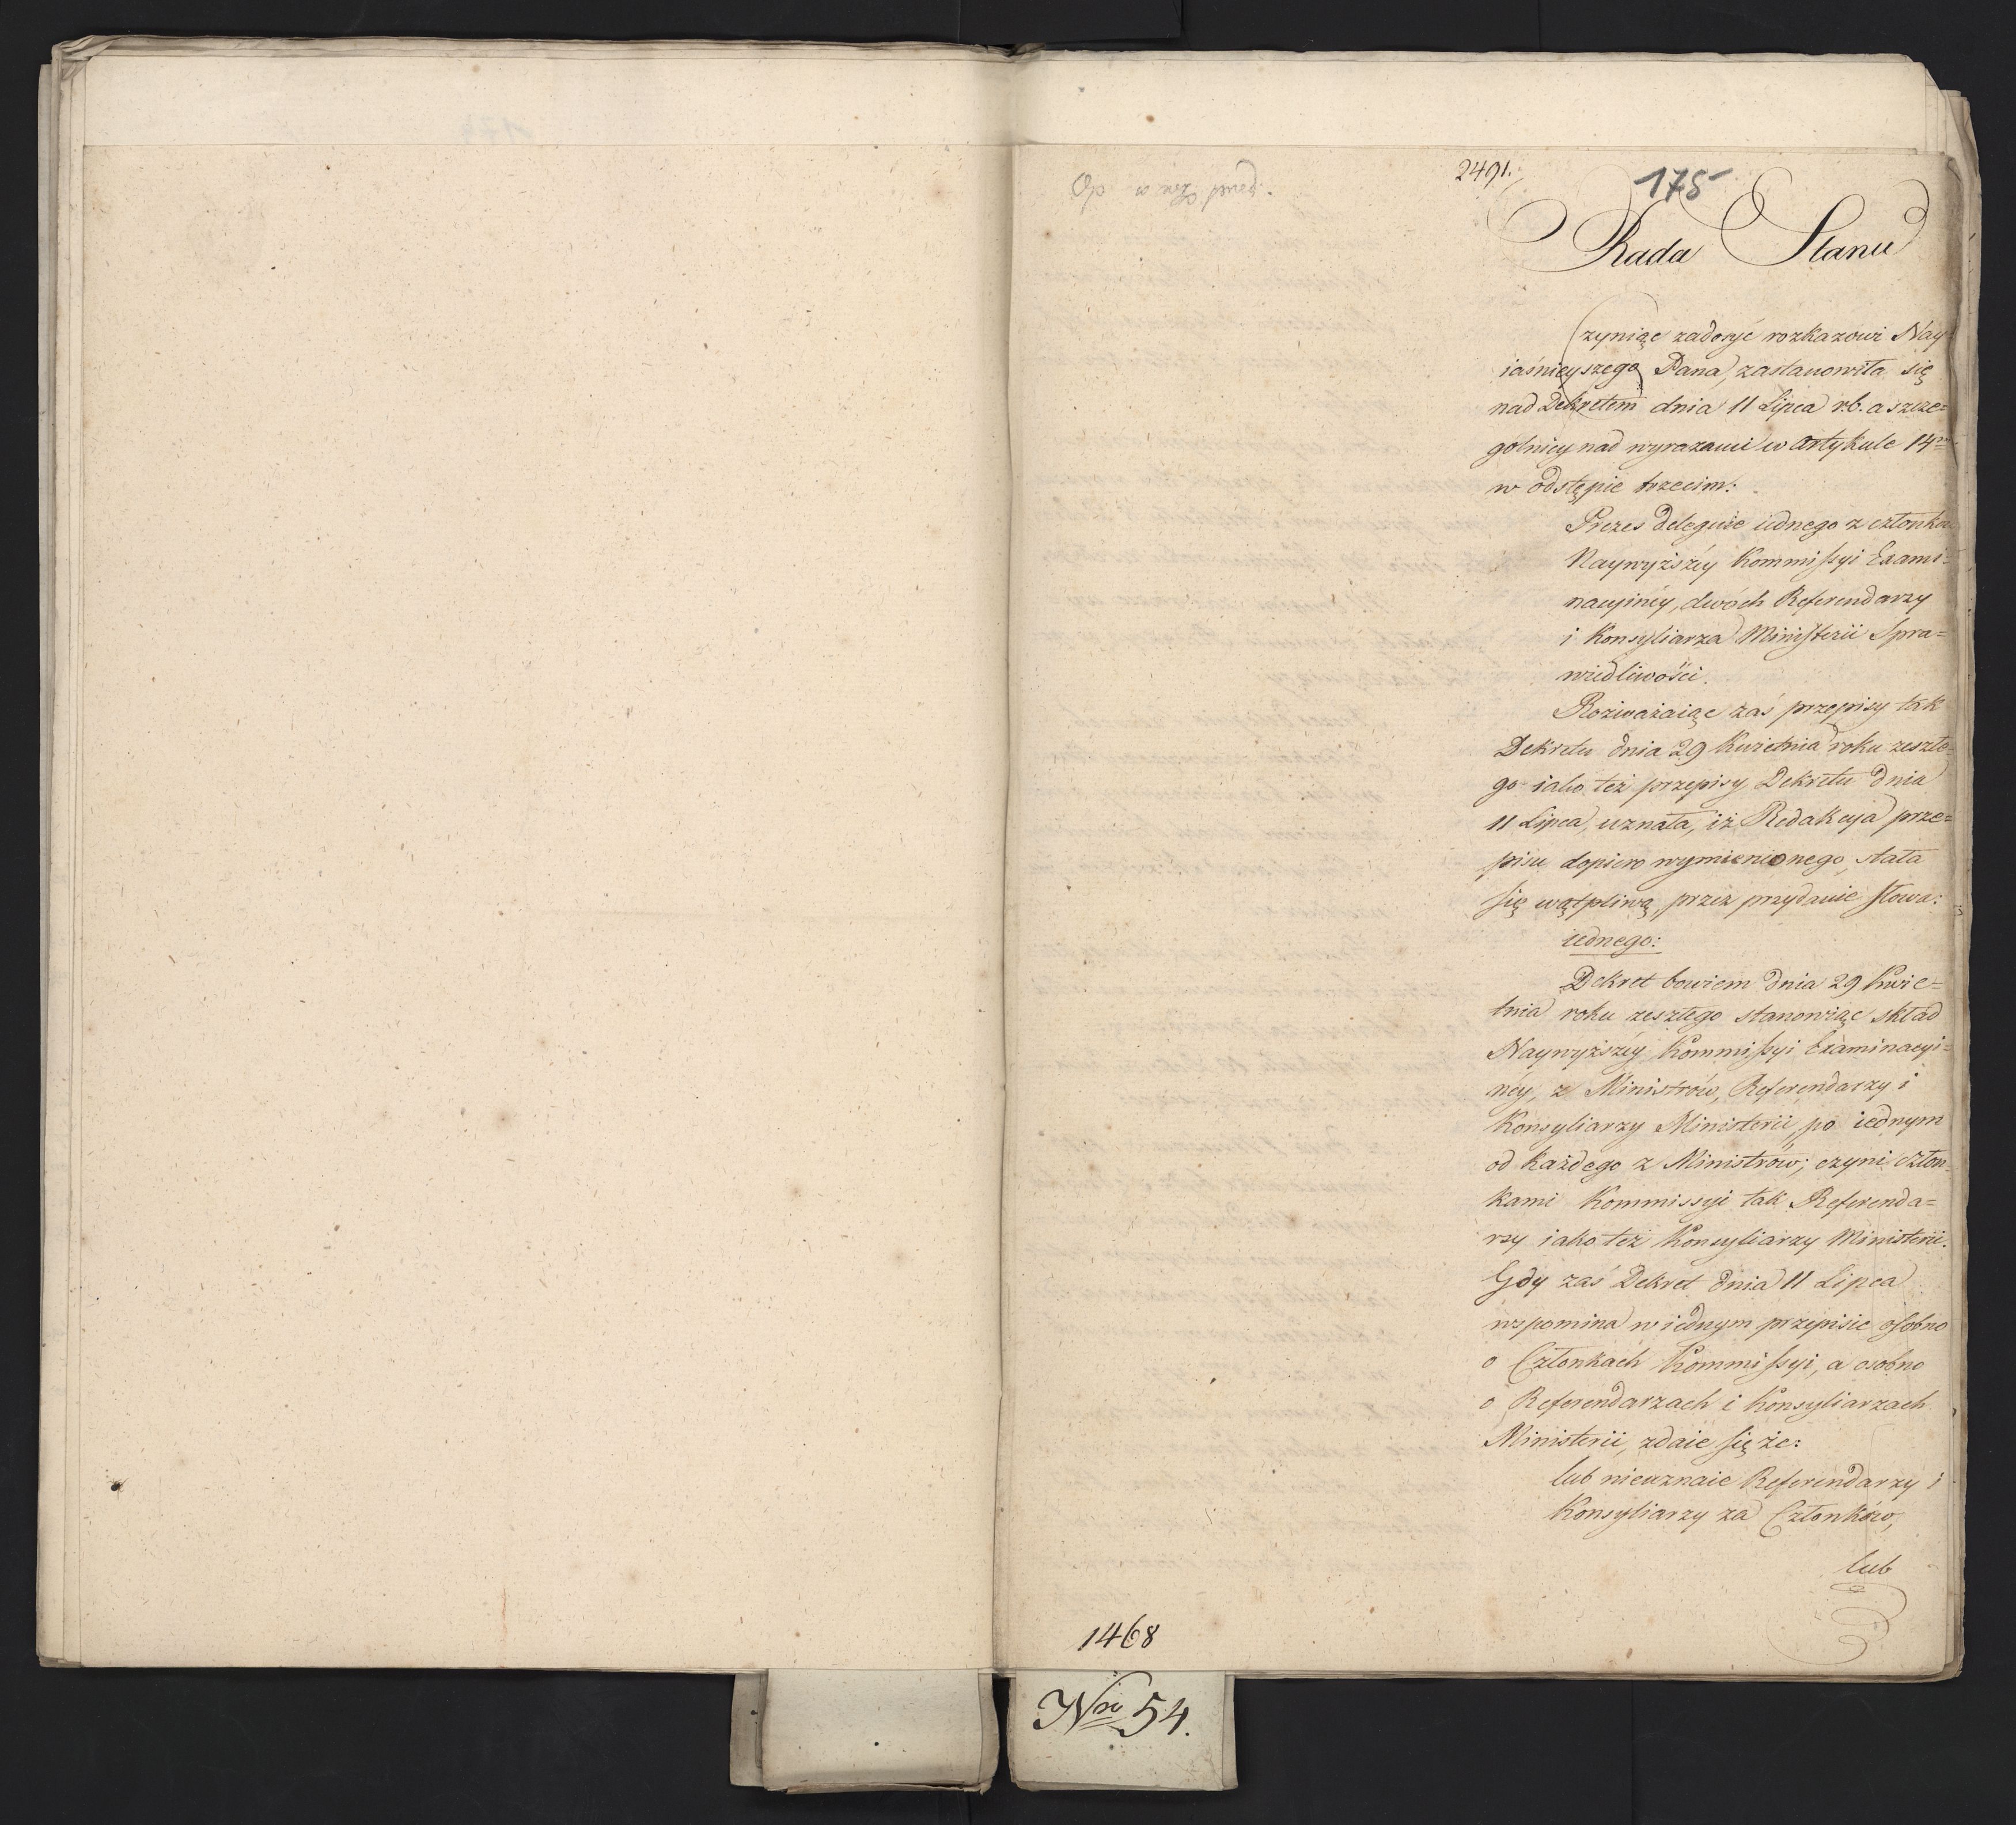 2491.
175
Rada Stanu
Czyniąc zadosyć rozkazowi Nay=
iaśnieyszego Pana, zastanowiła się
nad Dekretem dnia 11 Lipca r.b. a szcze=
gólniey nad wyrazami w Artykule 14m
w odstępie trzecim:
Prezes deleguie iednego z członków
Naywyższéy Kommissyi Exami=
nacyinéy, dwóch Referendarzy
i Konsyliarza Ministerii Spra=
wiedliwości.
Rozważaiąc zaś przepisy tak
Dekretu dnia 29 Kwietnia roku zeszłe=
go iako też przepisy Dekretu dnia
11 Lipca, uznała, iż Redakcya prze=
pisu dopiero wymienionego, stała
się wątpliwą, przez przydanie słowa:
iednego:
Dekret bowiem dnia 29 Kwie=
tnia roku zeszłego stanowiąc skład
Naywyższéy Kommissyi Examinacyi=
néy, z Ministrów, Referendarzy i
Konsyliarzy Ministerii, po iednym
od każdego z Ministrów; czyni człon=
kami Kommissyi tak Referenda=
rzy iako też Konsyliarzy Ministerii.
Gdy zaś Dekret dnia 11 Lipca
wspomina w iednym przepisie osobno
o Członkach Kommissyi, a osobno
o Referendarzach i Konsyliarzach
Ministerii, zdaie się że:
lub nieuznaie Referendarzy i
Konsyliarzy za Członków,
lub
1468
Nro 54.